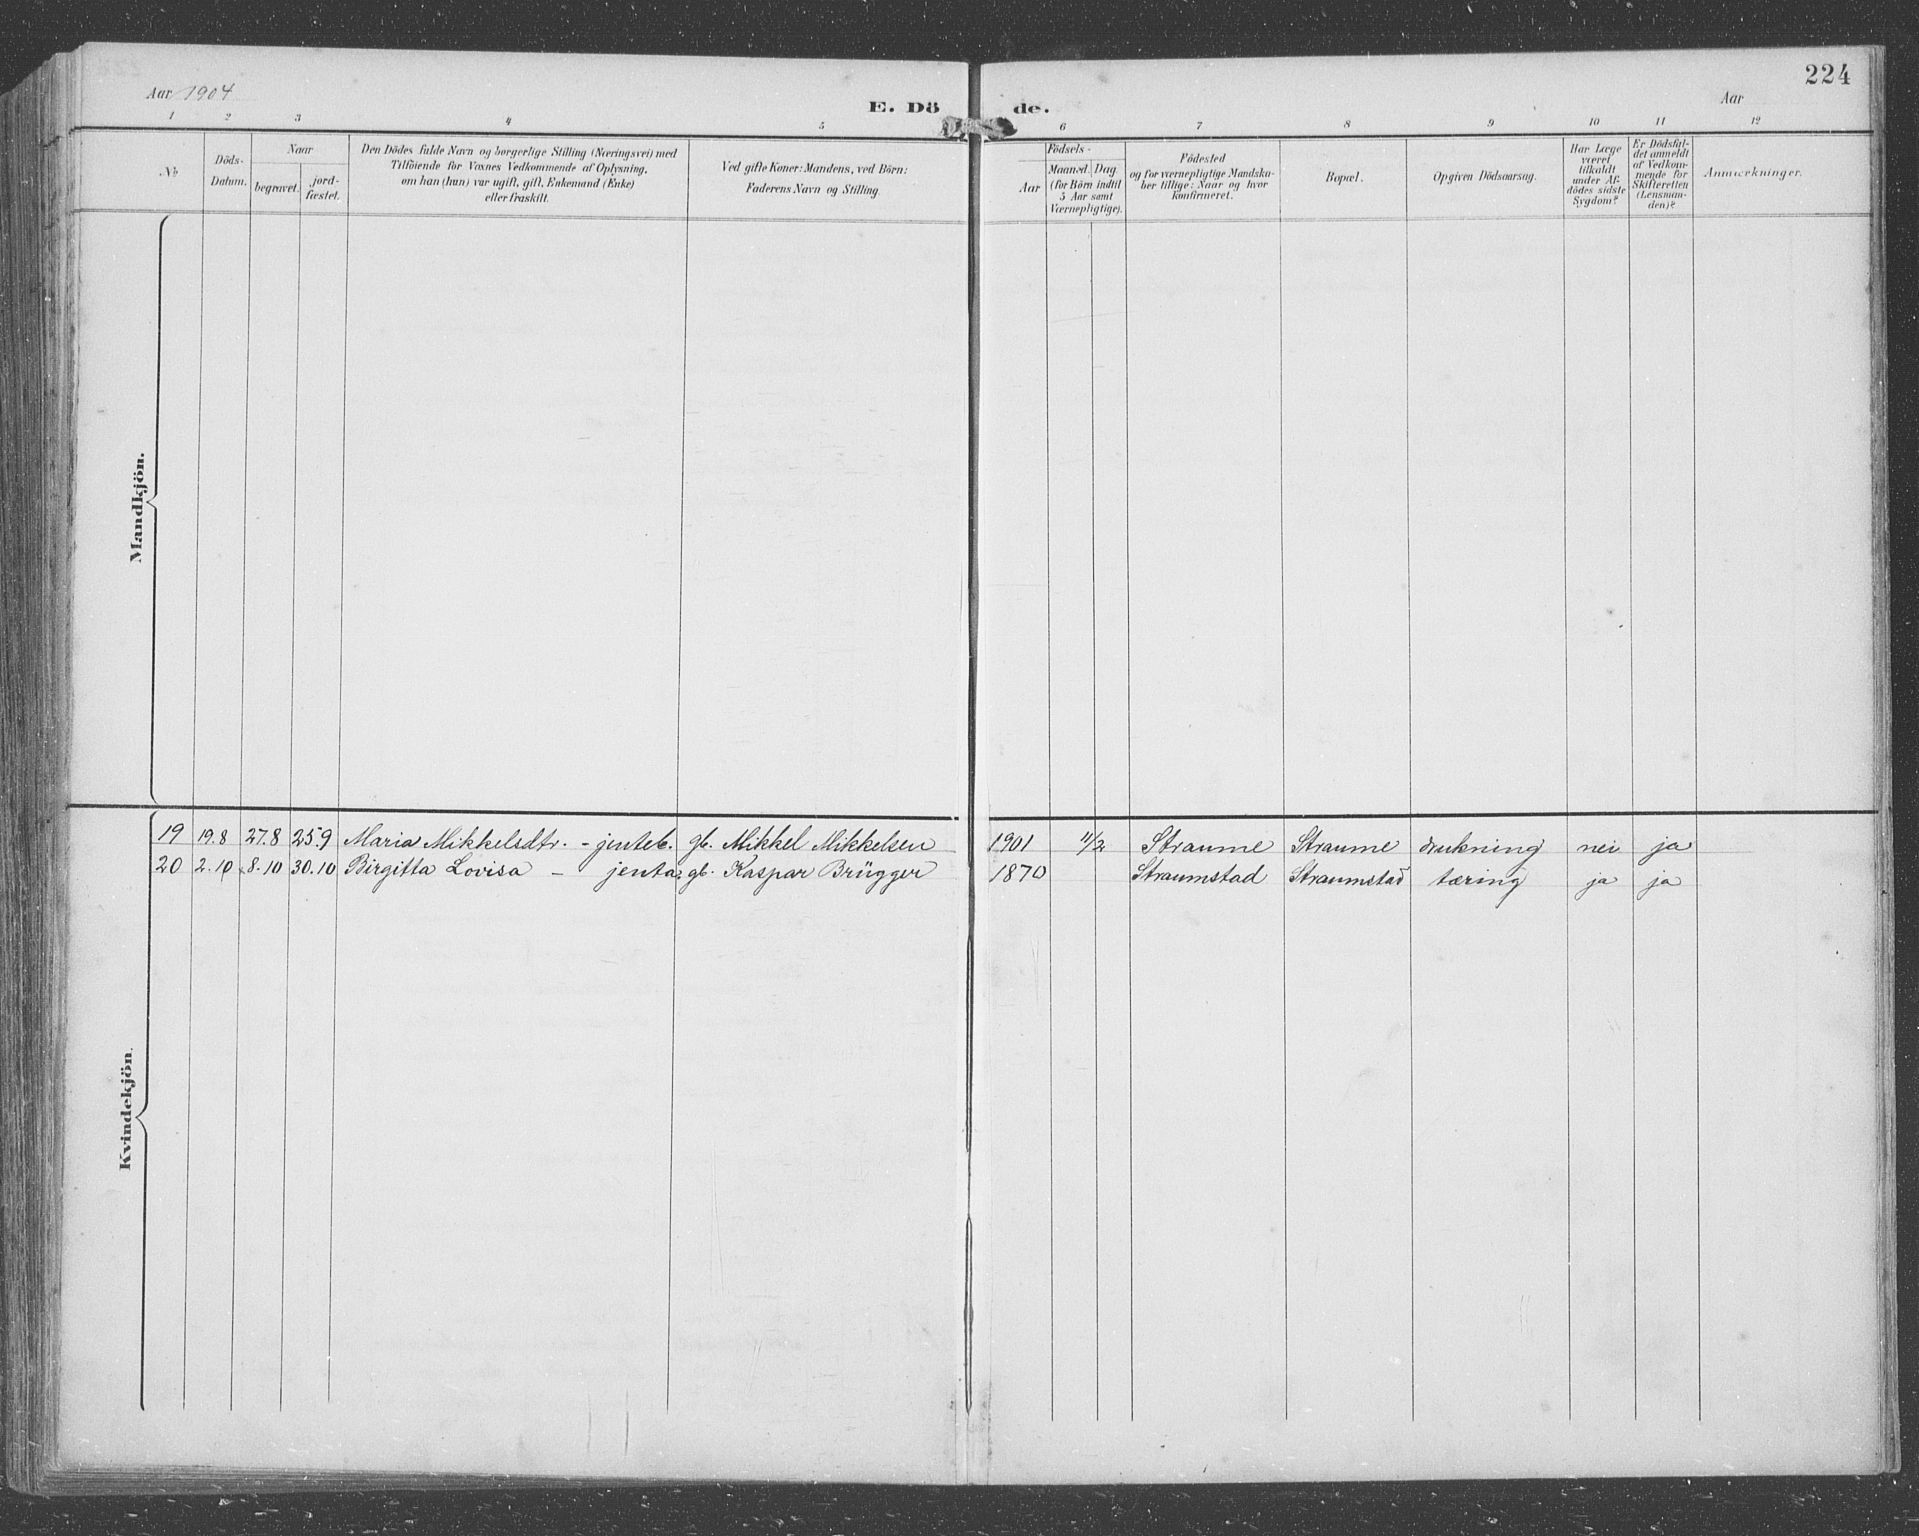 224
Aar 1904
E. Dö de.
Aar
1 2 3 4 5 6 7 8 9 10 11 12
No
Döds-
Datum.
Naar
begravet.
jord-
fæstet.
Den Dödes fulde Navn og borgerlige Stilling (Næringsvei) med
Tilföiende for Voxnes Vedkommende af Oplysning,
om han (hun) var ugift, gift, Enkemand (Enke)
eller fraskilt.
Ved gifte Koner: Mandens, ved Börn:
Faderens Navn og Stilling.
Födsels-
Aar
Maaned.
Dag.
(for Börn indtil
5 Aar samt
Værnepligtige).
Födested
og for værnepligtige Mandska-
ber tillige: Naar og hvor
Konfirmeret.
Bopæl.
Opgiven Dödsaarsag.
Har Læge
været
tilkaldt
under Af-
dödes sidste
Sygdom?
Er Dödsfal-
det anmeldt
af Vedkom-
mende for
Skifteretten
(Lensman-
den)?
Anmærkninger.
Mandkjön.
Kvindekjön.
19 19.8 27.8 25.9 Maria Mikkelsdtr. - jenteb. gb. Mikkel Mikkelsen 1901 11/2 Straume Straume drukning nei ja
20 2.10 8.10 30.10 Birgitta Lovisa - jenta gb. Kaspar Brügger 1870 Straumstad Straumstad tæring ja ja